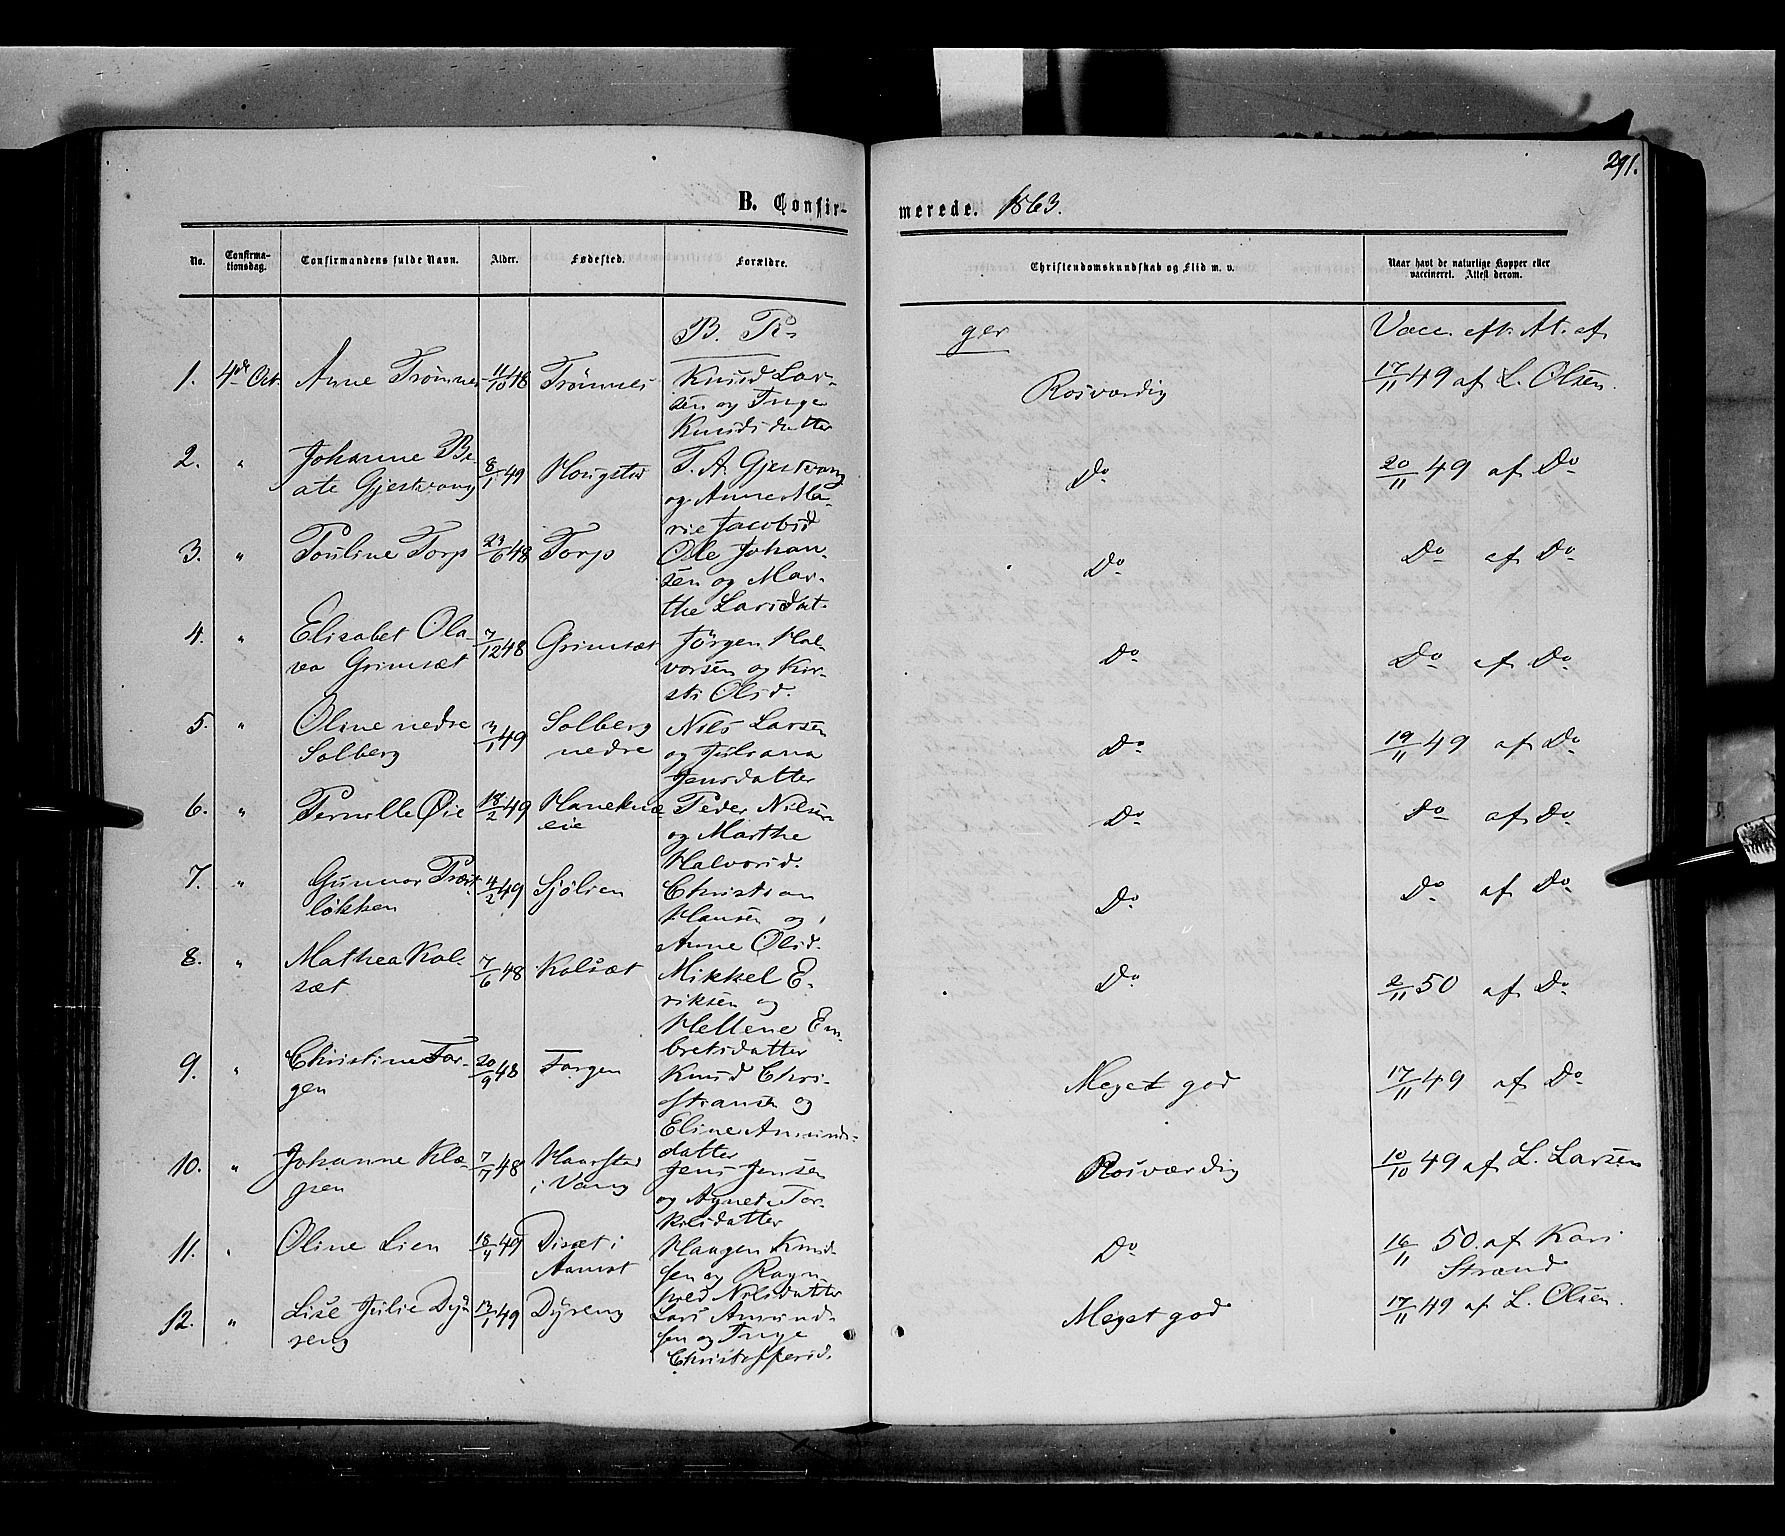 291.
B. Confir-
merede. 1863.
No.
Confirma-
tionsdag.
Confirmandens fulde Navn.
Alder.
Fødested.
Forældre.
Christendomskundskab og Flid m. v.
Naar havt de naturlige Kopper eller
vaccineret. Attest derom.
B. Pi-
ger
Vacc. eft. At. af
1. 4de Oct. Anne Trømnes 11/10 48 Trømnes Knud Lar-
sen og Inge
Knudsdatter
Rosværdig 17/11 49 af L. Olsen.
2. " Johanne Be-
ate Gjestvang 8/1 49 Hougstad T. A. Gjestvang
og Anne Ma-
rie Jacobsd
Do 20/11 49 af Do
3. " Pouline Torp 23/6 48 Torp Ole Johan-
sen og Mar-
the Larsdat.
Do Do af Do
4. " Elisabet Ola-
va Grimsæt 7/12 48 Grimsæt Jørgen Hal-
vorsen og Kir-
sti Olsd.
Do Do af Do
5. " Oline nedre
Solberg 3/1 49 Solberg
nedre Nils Larsen
og Juliana
Jensdatter
Do 19/11 49 af Do
6. " Pernille Øie 18/2 49 Haneknæ
eie Peder Nilsen
og Marthe
Halvorsd.
Do Do af Do
7. " Gunnor Præst-
løkken 4/2 49 Sjølien Christian
Hansen og
Anne Olsd.
Do Do af Do
8. " Mathea Kol-
sæt 7/6 48 Kolsæt Mikkel E-
riksen og
Hellene Em-
bretsdatter
Do 2/11 50 af Do
9. " Christine For-
gen 20/9 48 Forgen Knud Chri-
stiansen og
Eline Amunds-
datter
Meget god 17/11 49 af Do
10. " Johanne Klæ-
pen 7/7 48 Haarstad
i Vang Jens Jensen
og Agnete Tor-
kilsdatter
Rosværdig 10/10 49 af L. Larsen
11. " Oline Lien 18/4 49 Disæt i
Aamot Haagen Knud-
sen og Ragn-
hild Nilsdatter
Do 16/11 50. af Kari
Strand
12. " Lise Julie Dyr
reng 13/1 49 Dyreng Lars Amund-
sen og Inge
Christoffersd.
Meget god 17/11 49 af L. Olsen.